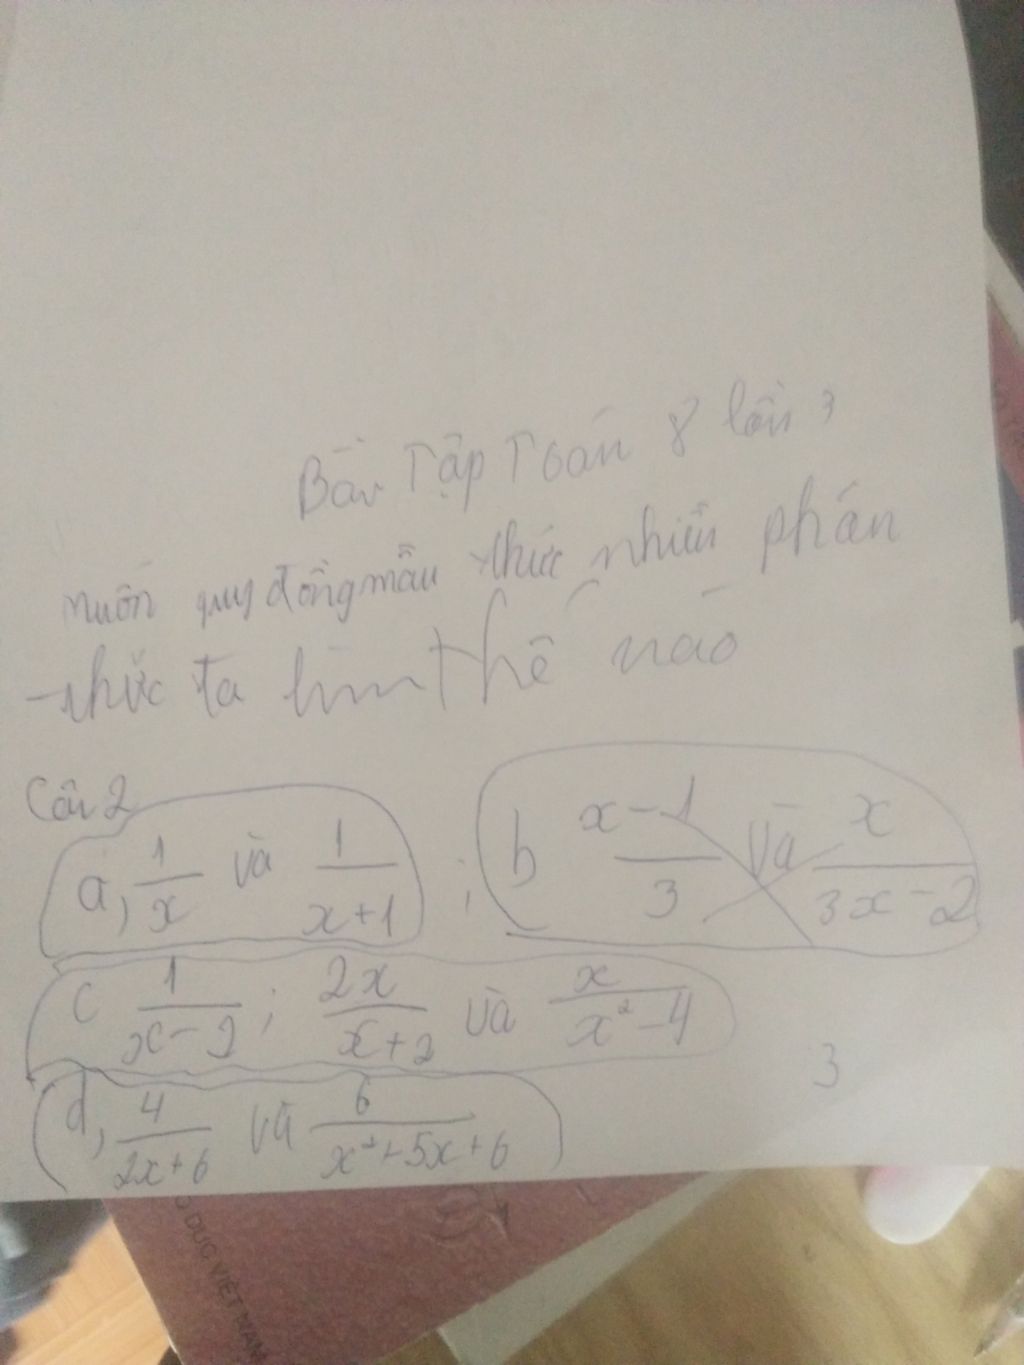 Bài Tập Toán 8 lần 3
muốn quy đồng mẫu thức nhiều phân
thức ta làm thế nào
Câu 2
a, 1/x và 1/x+1 ; b x-1/3 và x/3x-2
c 1/x-2 ; 2x/x+2 và x/x²-4
3
d, 4/2x+6 và 6/x²+5x+6
DỤC VIỆT NAM